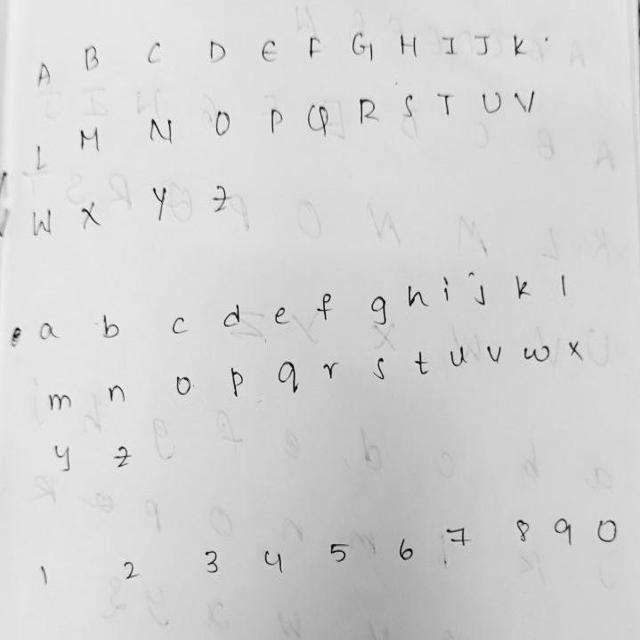 A B C D E F G H I J K
L M N O P Q R S T U V
W X Y Z
a b c d e f g h i j k l
m n o p q r s t u v w x
y z
1 2 3 4 5 6 7 8 9 0